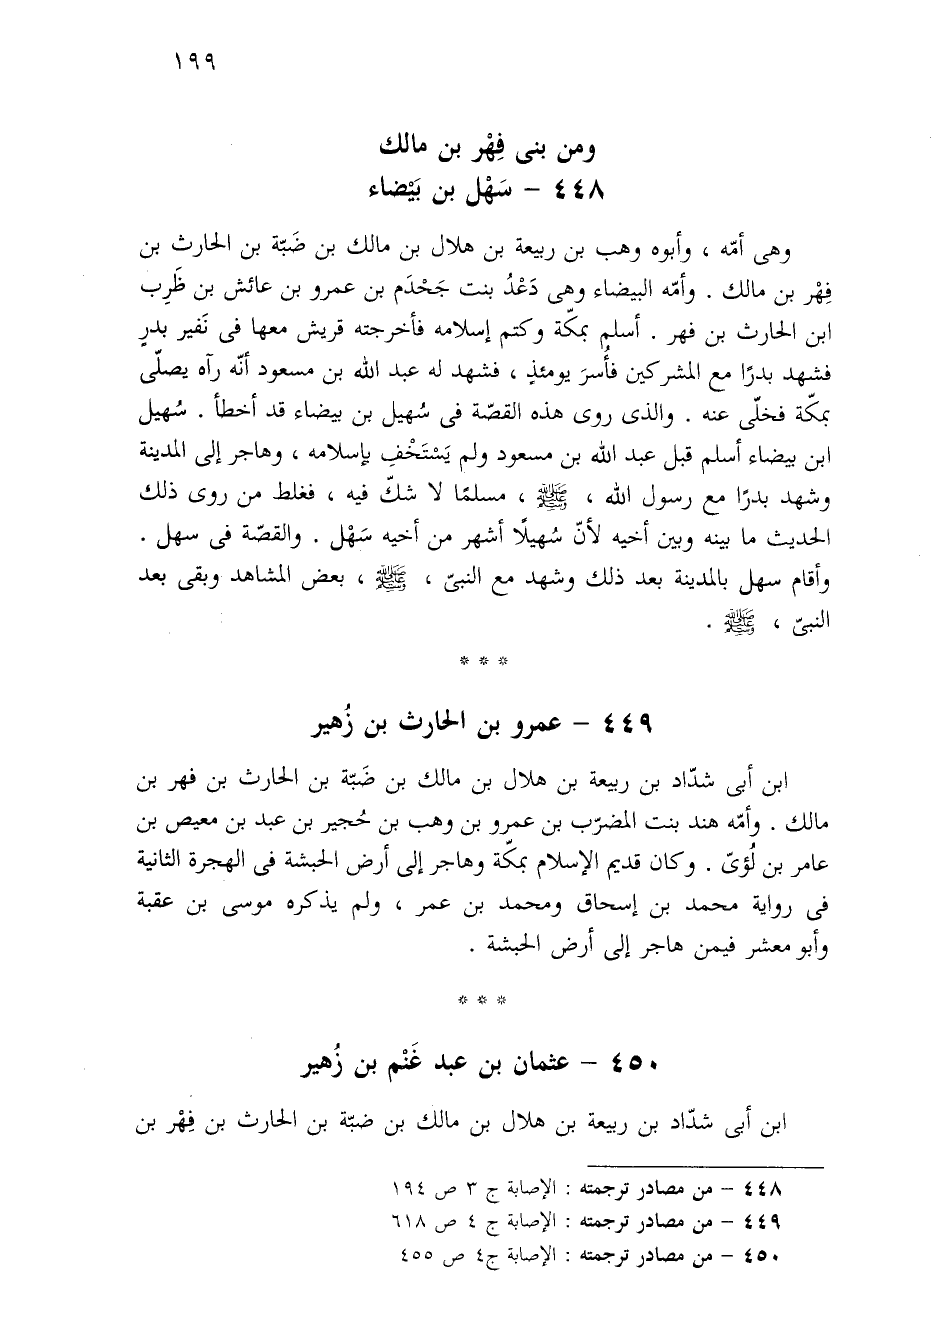 ١٩٩
ومن بنى فِهْر بن مالك
٤٤٨ – سَهْل بن بَيْضاء
وهى أمّه ، وأبوه وهب بن ربيعة بن هلال بن مالك بن ضَبّة بن الحارث بن
فِهْر بن مالك . وأمّه البيضاء وهى دَعْدُ بنت جَحْدَم بن عمرو بن عائش بن ظَرِب
ابن الحارث بن فهر . أسلم بمكّة وكتم إسلامه فأخرجته قريش معها فى نَفير بدرٍ
فشهد بدرًا مع المشركين فأُسرَ يومئذٍ ، فشهد له عبد الله بن مسعود أنّه رآه يصلّى
بمكّة فخلّى عنه . والذى روى هذه القصّة فى سُهيل بن بيضاء قد أخطأ . سُهيل
ابن بيضاء أسلم قبل عبد الله بن مسعود ولم يَسْتَخْفِ بإسلامه ، وهاجر إلى المدينة
وشهد بدرًا مع رسول الله ، ﷺ ، مسلمًا لا شكّ فيه ، فغلط من روى ذلك
الحديث ما بينه وبين أخيه لأنّ سُهيلًا أشهر من أخيه سَهْل . والقصّة فى سهل .
وأقام سهل بالمدينة بعد ذلك وشهد مع النبىّ ، ﷺ ، بعض المشاهد وبقى بعد
النبىّ ، ﷺ .
* * *
٤٤٩ – عمرو بن الحارث بن زُهير
ابن أبى شدّاد بن ربيعة بن هلال بن مالك بن ضَبّة بن الحارث بن فهر بن
مالك . وأمّه هند بنت المضرّب بن عمرو بن وهب بن حُجير بن عبد بن معيص بن
عامر بن لُؤىّ . وكان قديم الإسلام بمكّة وهاجر إلى أرض الحبشة فى الهجرة الثانية
فى رواية محمد بن إسحاق ومحمد بن عمر ، ولم يذكره موسى بن عقبة
وأبو معشر فيمن هاجر إلى أرض الحبشة .
* * *
٤٥٠ – عثمان بن عبد غَنْم بن زُهير
ابن أبى شدّاد بن ربيعة بن هلال بن مالك بن ضبّة بن الحارث بن فِهْر بن
٤٤٨ – من مصادر ترجمته : الإصابة ج ٣ ص ١٩٤
٤٤٩ – من مصادر ترجمته : الإصابة ج ٤ ص ٦١٨
٤٥٠ – من مصادر ترجمته : الإصابة ج٤ ص ٤٥٥